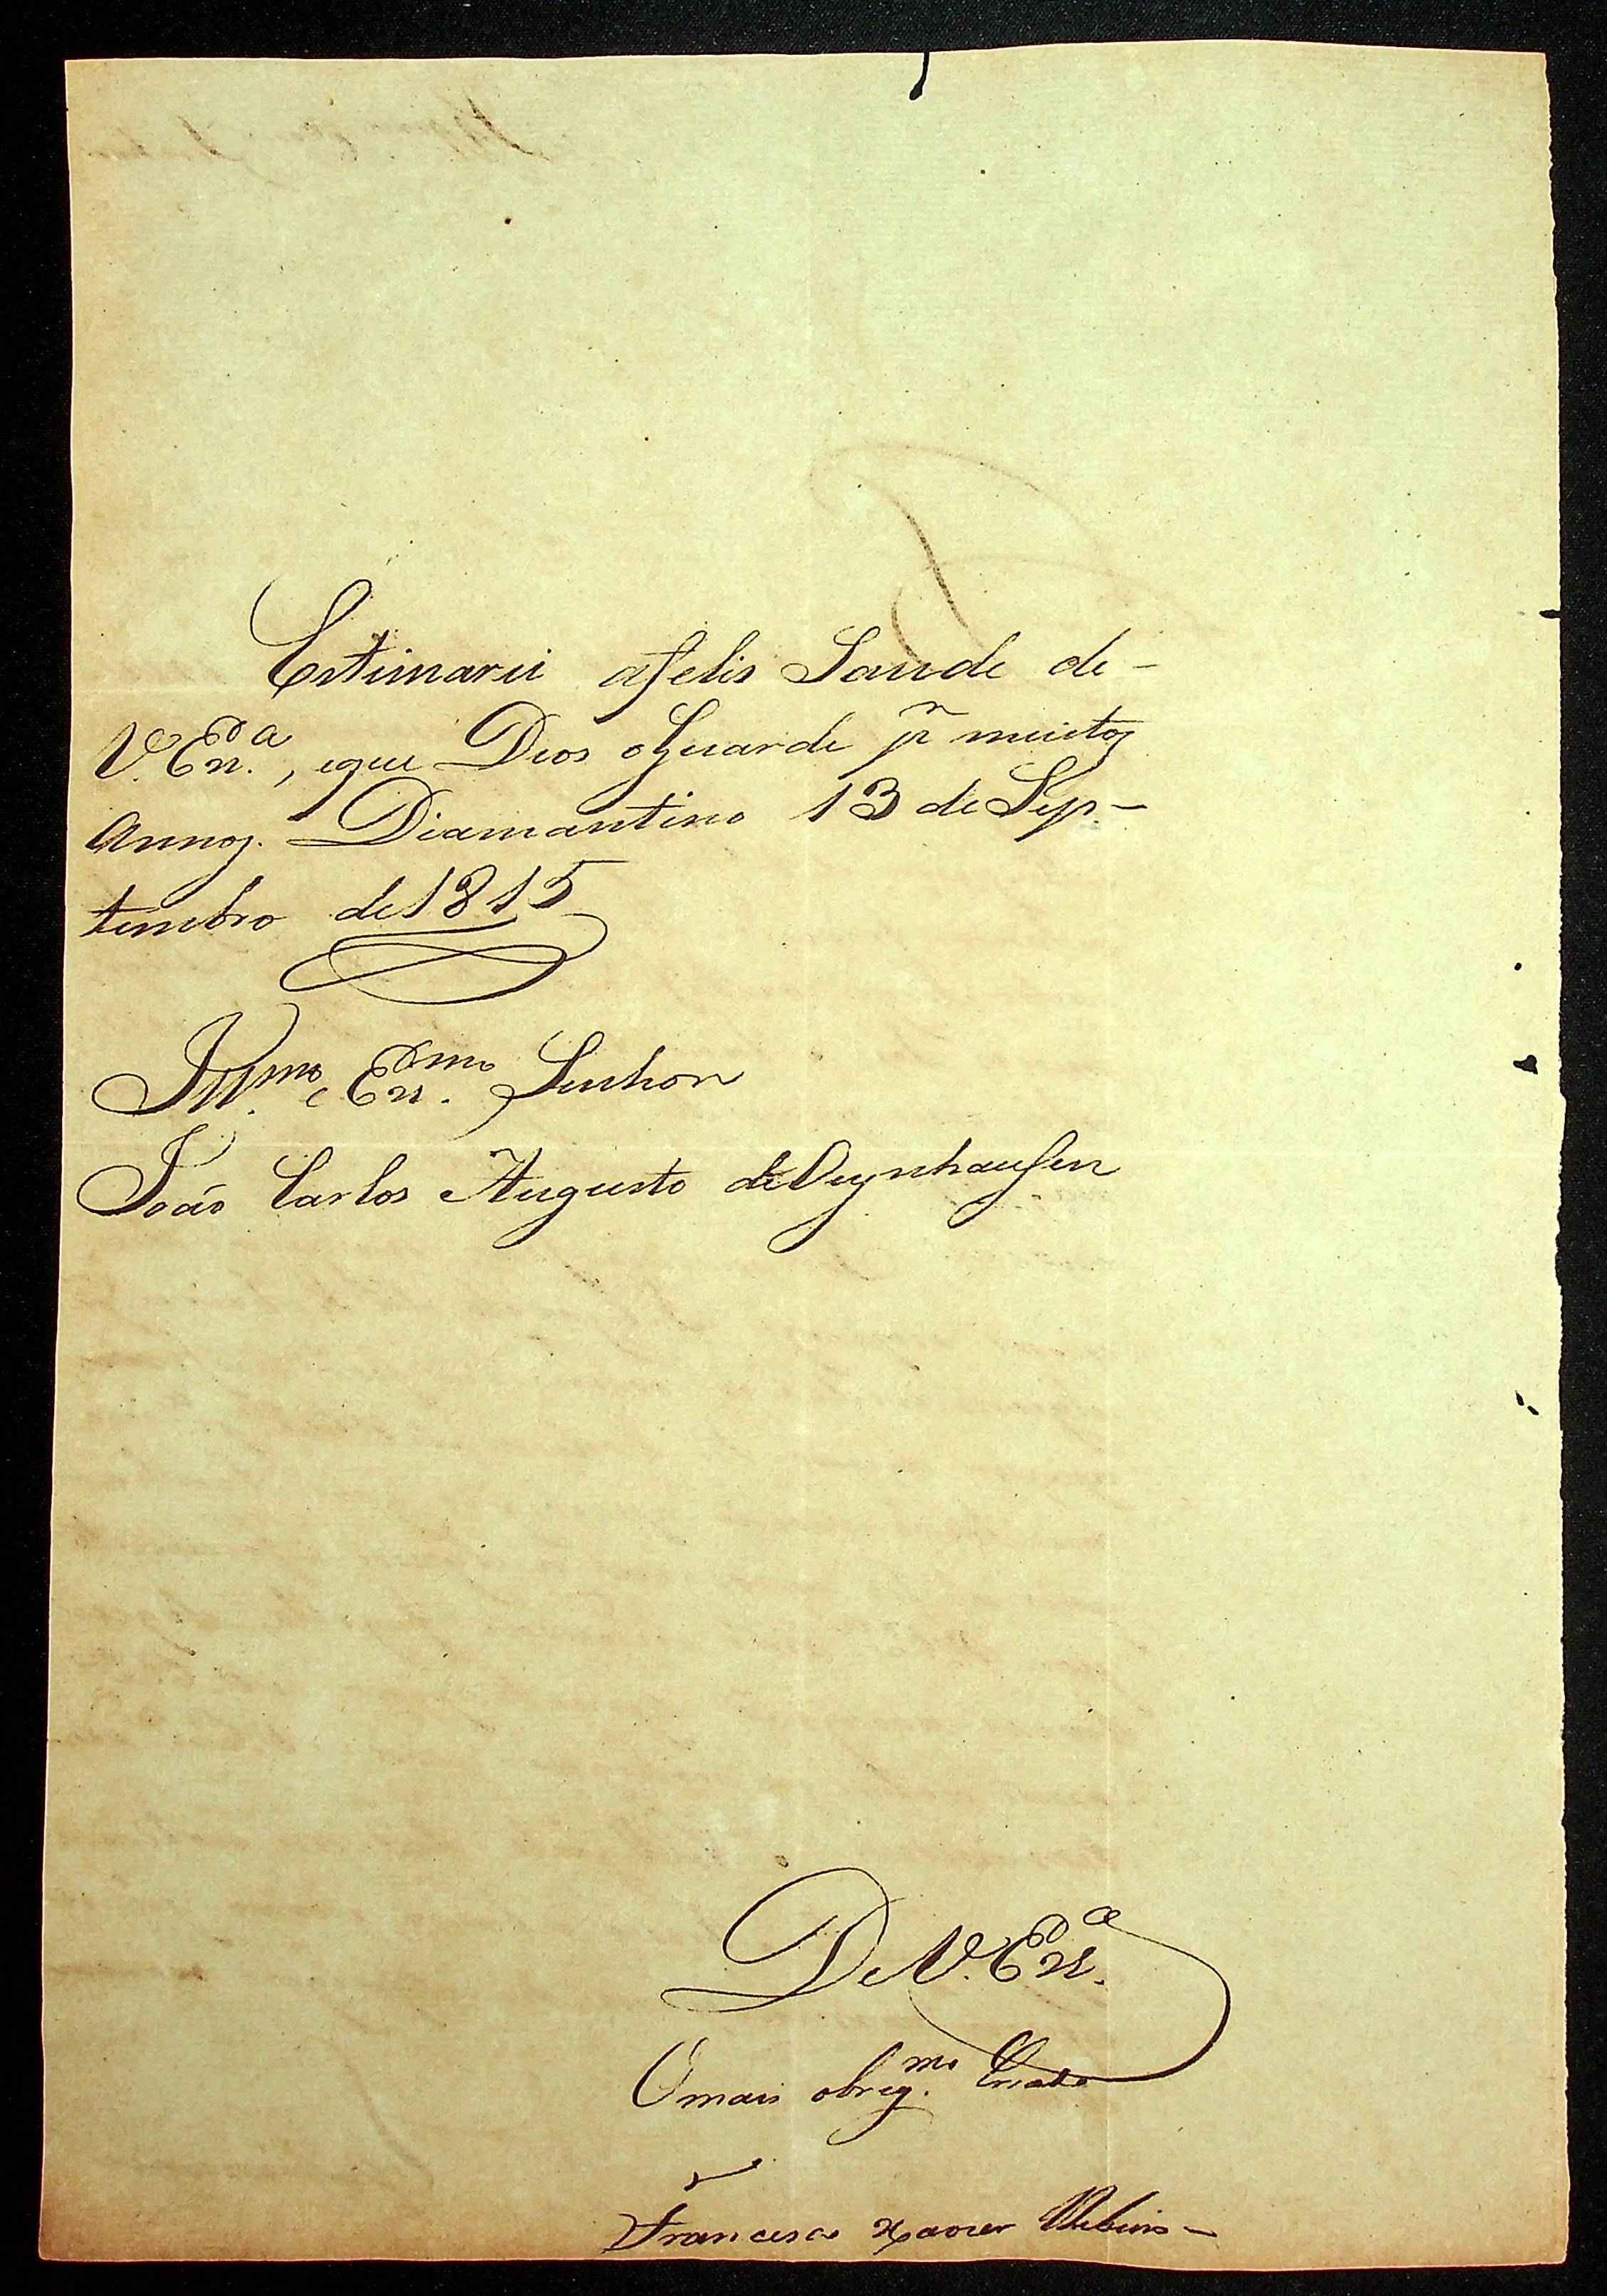 Estimarei afelis Saude de-
V. Exa., eque Deos oGuarde pr muitos
Annos. Diamantino 13 de Sep-
tembro de 1815
Illmo. e Exmo. Senhor
João Carlos Augusto deOeynhausen
De V. Exa.
O mais obrigmo. Criado
Francisco Xavier Ribeiro